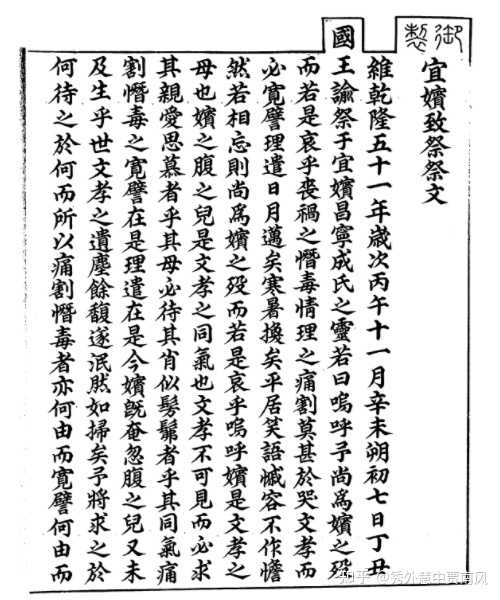 御製
宜嬪致祭祭文
維乾隆五十一年歲次丙午十一月辛未朔初七日丁丑
國
王諭祭于宜嬪昌寧成氏之靈若曰嗚呼予尚爲嬪之歿
而若是哀乎喪禍之憯毒情理之痛割莫甚於哭文孝而
必寬譬理遣日月邁矣寒暑換矣平居笑語慽容不作憺
然若相忘則尚爲嬪之歿而若是哀乎嗚呼嬪是文孝之
母也嬪之腹之兒是文孝之同氣也文孝不可見而必求
其親愛思慕者乎其母必待其肖似髣髴者乎其同氣痛
割憯毒之寬譬在是理遣在是今嬪旣奄忽腹之兒又未
及生乎世文孝之遺塵餘馥遂泯然如掃矣予將求之於
何待之於何而所以痛割憯毒者亦何由而寬譬何由而
知乎 @秀外慧中賈南风